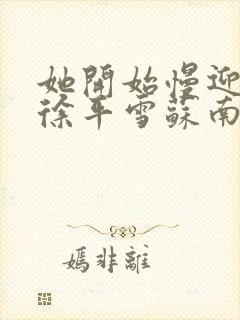 她開始慢迎
徐平雪蘇南
嫣非離